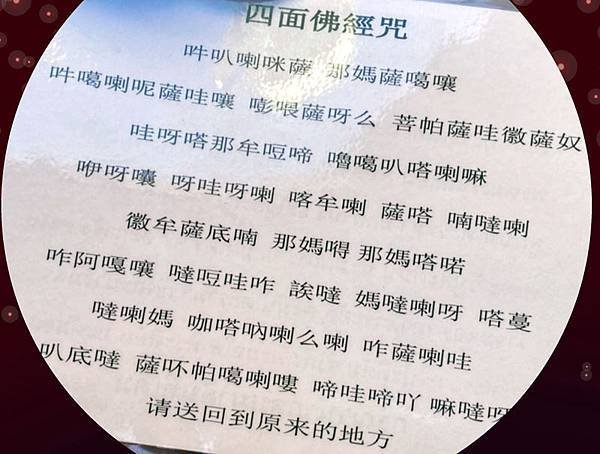 四面佛經咒
吽叭喇咪薩 那媽薩噶嚷
吽噶喇呢薩哇嚷 嘭喂薩呀么 菩帕薩哇徽薩奴
哇呀嗒那牟哣啼 嚕噶叭嗒喇嘛
咿呀囔 呀哇呀喇 喀牟喇 薩嗒 喃噠喇
徽牟薩底喃 那媽嘚 那媽嗒喏
咋阿嘎嚷 噠哣哇咋 誒噠 媽噠喇呀 嗒蔓
噠喇媽 咖嗒吶喇么喇 咋薩喇哇
叭底噠 薩吥帕噶喇嘍 啼哇啼吖 嘛噠呀
请送回到原来的地方